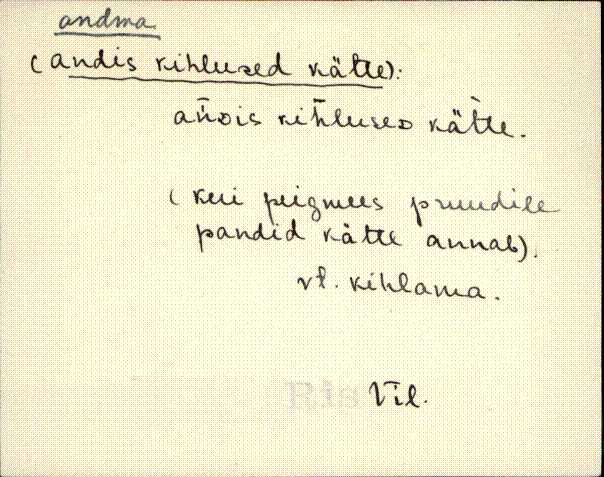 andma
(andis kihlused kätte):
an̄ᴅis kih̄luseᴅ kät̀te.
(kui peigmees pruudile
pandid kätte annab).
vt. kihlama.
Ris
Vil.